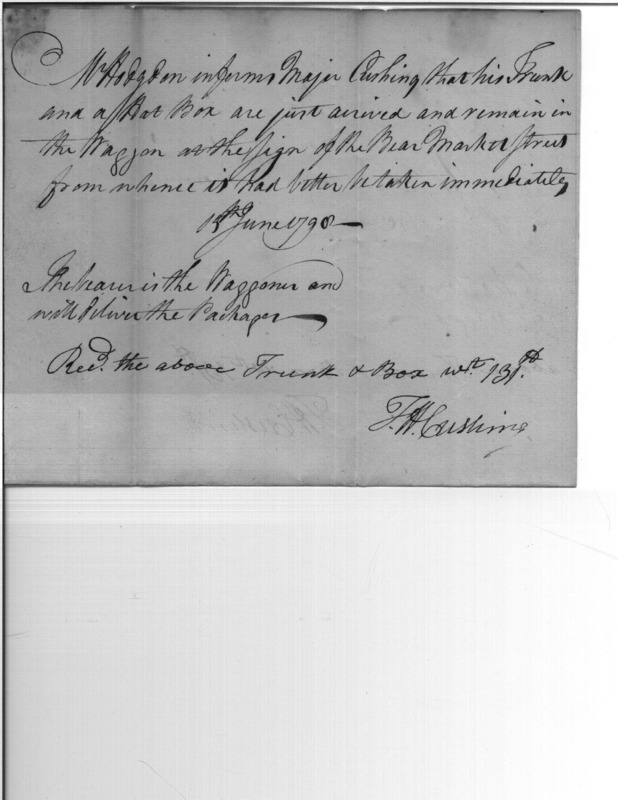 Mr Hodgdon informs Major Cushing that his Trunk
and a Hat Box are just arrived and remain in
the Waggon at the sign of the Bear Market Street
from whence it had better be taken immediately
June 1798
The bearer is the Waggoner and
will deliver the Packages
Recd. the above Trunk & Box wt. 131
T. H. Cushing